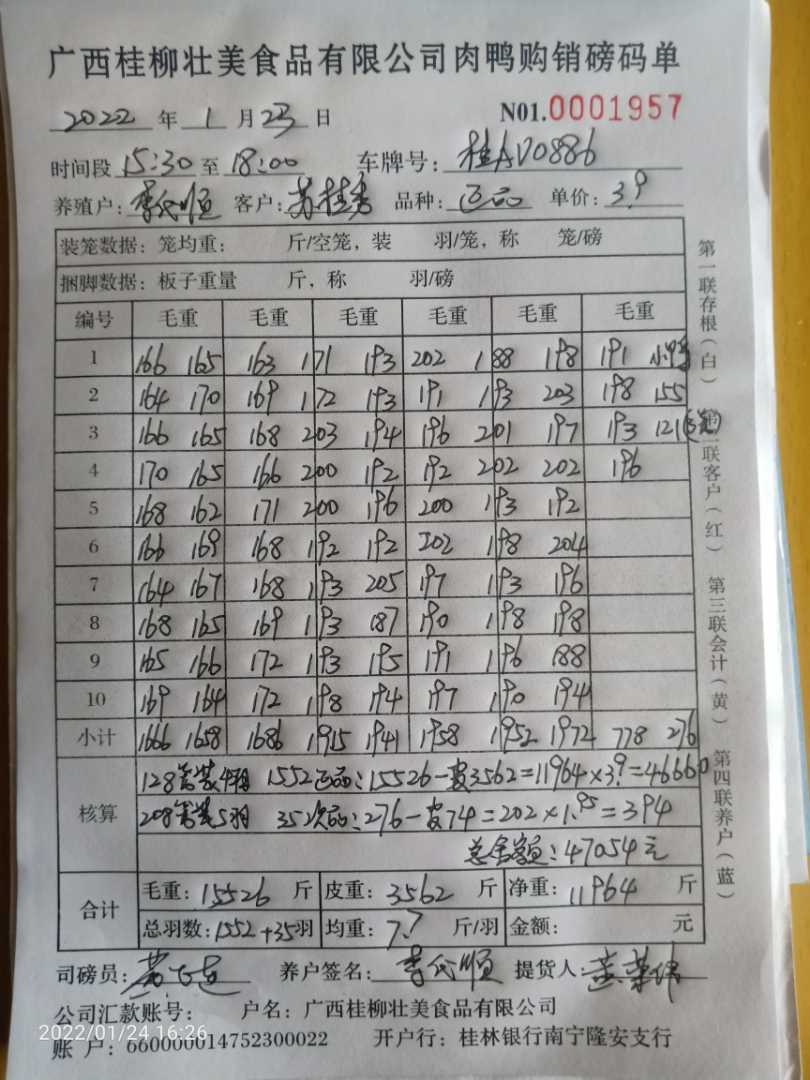 广西桂柳壮美食品有限公司肉鸭购销磅码单
2022 年 1 月 23 日 N01.0001957
时间段 15:30 至 18:00 车牌号: 桂AV0886
养殖户: 李代顺 客户: 苏桂秀 品种: 正品 单价: 3.9
装笼数据: 笼均重: 斤/空笼, 装 羽/笼, 称 笼/磅
捆脚数据: 板子重量 斤, 称 羽/磅
编号 毛重 毛重 毛重 毛重 毛重 毛重
1 166 165 163 171 193 202 188 198 191 小鸭
2 164 170 169 172 193 191 193 203 198 155
3 166 165 168 203 194 196 201 197 193 121
4 170 165 166 200 192 192 202 202 196
5 168 162 171 200 196 200 193 192
6 166 169 168 192 192 202 198 204
7 164 167 168 193 205 197 193 196
8 168 165 169 193 187 190 198 198
9 165 166 172 193 195 191 196 188
10 169 164 172 198 194 197 190 194
小计 1666 1658 1686 1915 1941 1958 1952 1972 778 276
核算
128笼装4羽 1552正品: 15526-皮3562=11964×3.9=46660
208笼装5羽 35次品: 276-皮74=202×1.95=394
总金额: 47054元
合计
毛重: 15526 斤 皮重: 3562 斤 净重: 11964 斤
总羽数: 1552+35羽 均重: 7.7 斤/羽 金额: 元
司磅员: 养户签名: 李代顺 提货人: 黄荣伟
公司汇款账号: 户名: 广西桂柳壮美食品有限公司
账 户: 660000014752300022 开户行: 桂林银行南宁隆安支行
2022/01/24 16:26
第一联存根(白) 第二联客户(红) 第三联会计(黄) 第四联养户(蓝)